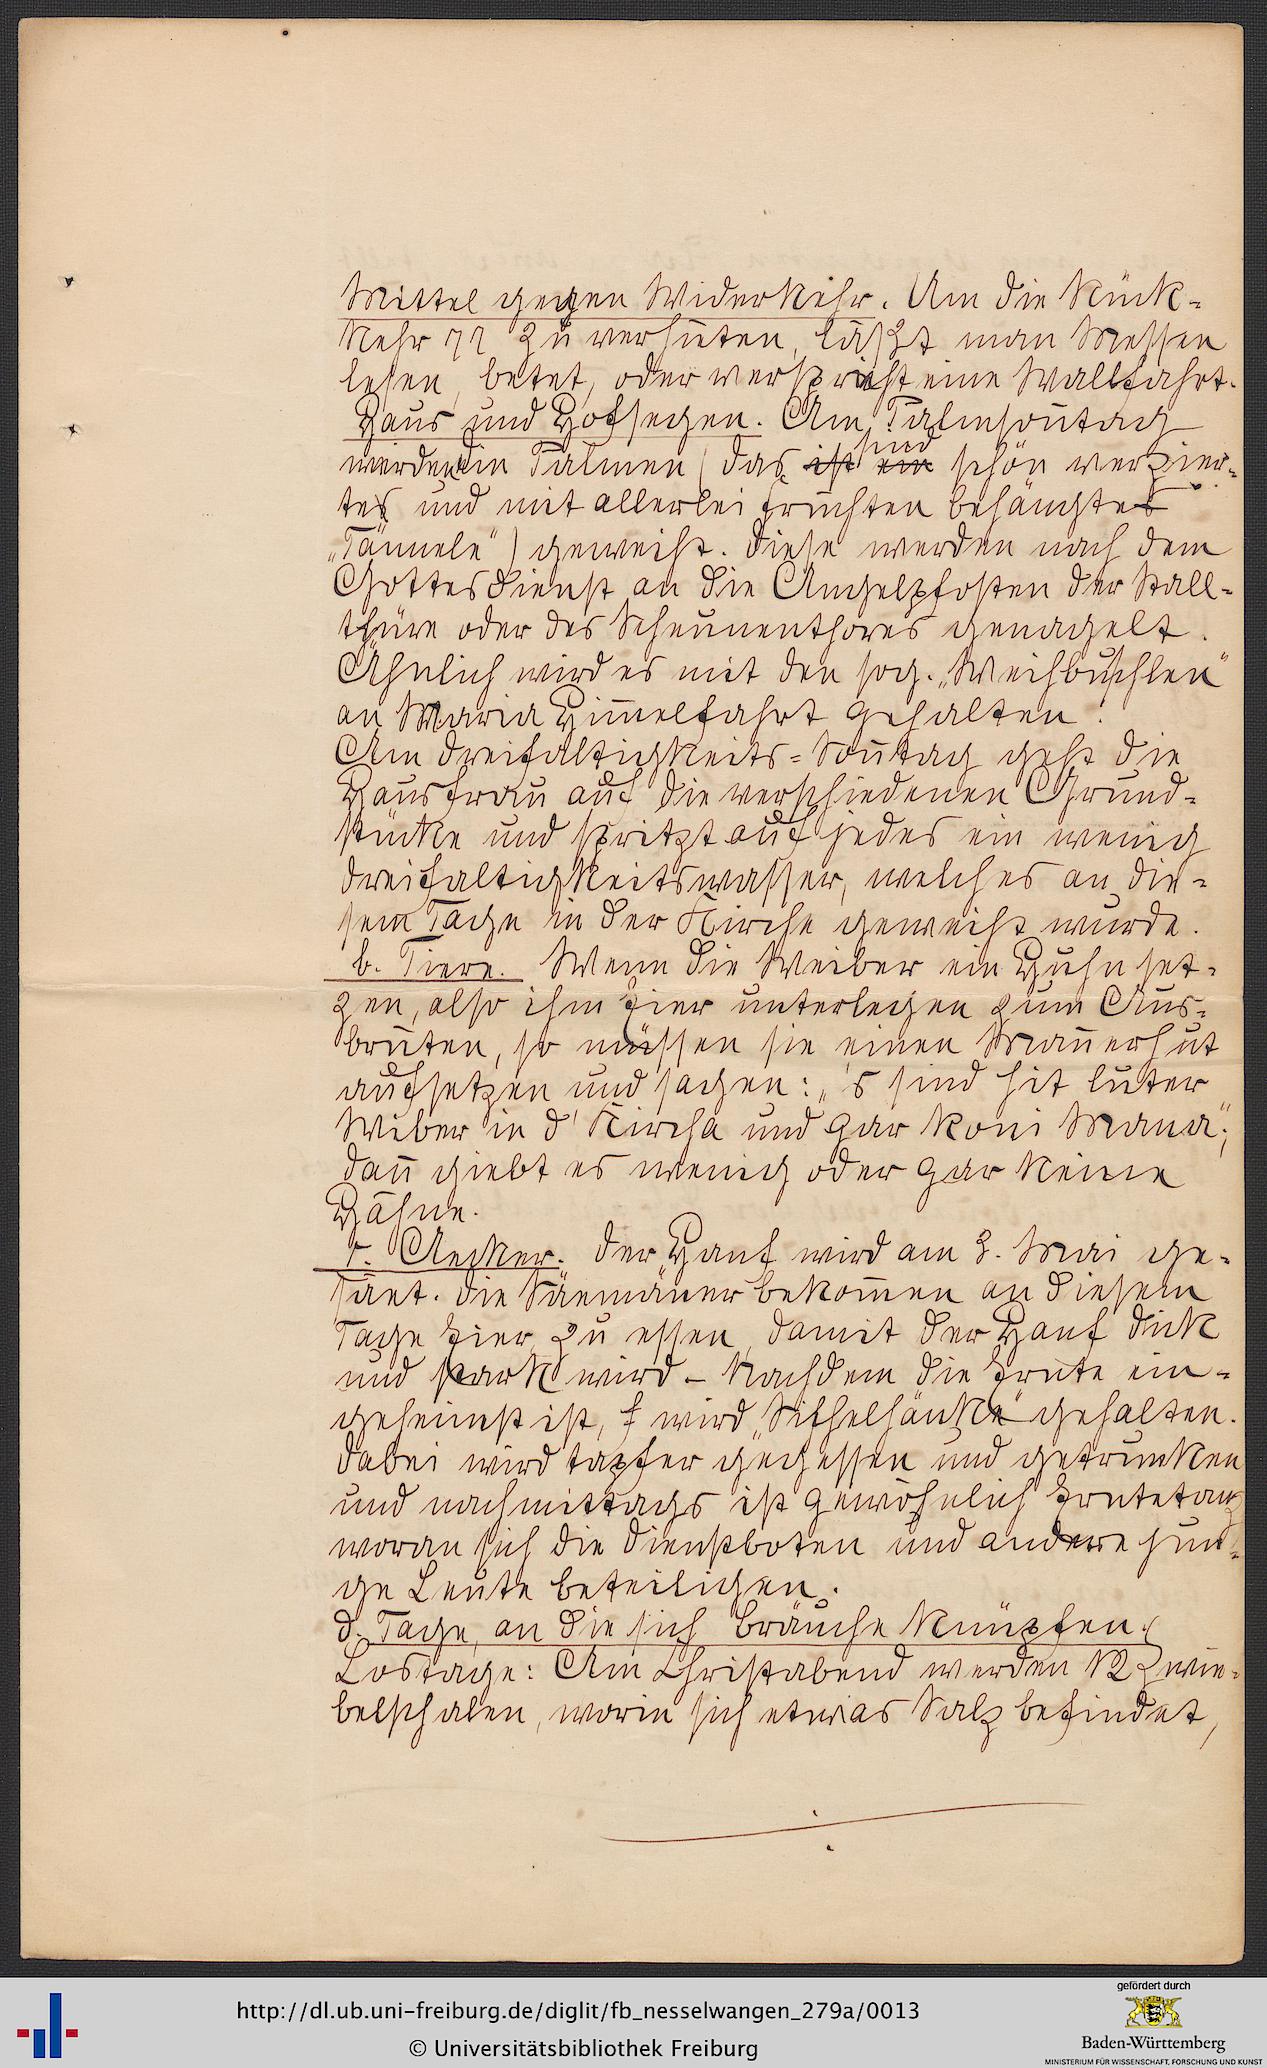 Mittel gegen Widerkehr. Um die Rück-
kehr zu verhüten, läßt man Messen
lesen, betet, oder verspricht eine Wallfahrt.
Haus und Hofsegen. Am Palmson̄tag
werden die Palmen (das ist ein sind schön verzier-
tes und mit allerlei Früchten behängtes
„Tännele") geweiht. Diese werden nach dem
Gottesdienst an die Angelpfosten der Stall-
thüre oder des Scheunenthores genagelt.
Ähnlich wird es mit den sog. „Weihbuschlen"
an Maria Him̄elfahrt gehalten.
Am Dreifaltigkeits-Son̄tag geht die
Hausfrau auf die verschiedenen Grund-
stücke und spritzt auf jedes ein wenig
Dreifaltigkeitswasser, welches an die-
sem Tage in der Kirche geweiht wurde.
b. Tiere. Wenn die Weiber ein Huhn set-
zen, also ihm Eier unterlegen zum Aus-
brüten, so müssen sie einen Man̄erhut
aufsetzen und sagen: „'s sind hit luter
Wiber in d' Kircha und gar koni Mana";
dan̄ giebt es wenig oder gar keine
Hähne.
c. Aecker. Der Hanf wird am 3. Mai ge-
säet. Die Säemän̄er bekom̄en an diesem
Tage Eier zu essen, damit der Hanf dick
und stark wird – Nachdem die Ernte ein-
geheimst ist, wird „Sichelhänke" gehalten.
Dabei wird tapfer gegessen und getrunken
und nachmittags ist gewöhnlich Erntetanz
woran sich die Dienstboten und andere jun-
ge Leute beteiligen.
d. Tage, an die sich Bräuche knüpfen.
Lostage: Am Christabend werden 12 Zwie-
belschalen, worin sich etwas Salz befindet,
http://dl.ub.uni-freiburg.de/diglit/fb_nesselwangen_279a/0013
© Universitätsbibliothek Freiburg
gefördert durch
Baden-Württemberg
MINISTERIUM FÜR WISSENSCHAFT, FORSCHUNG UND KUNST